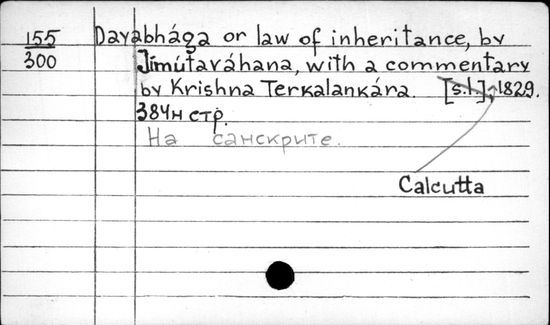 155
300
Dayabhága or law of inheritance, by
Jímútaváhana, with a commentary
by Krishna Terkalankára. [s.l.], 1829.
384н стр.
На санскрите.
Calcutta